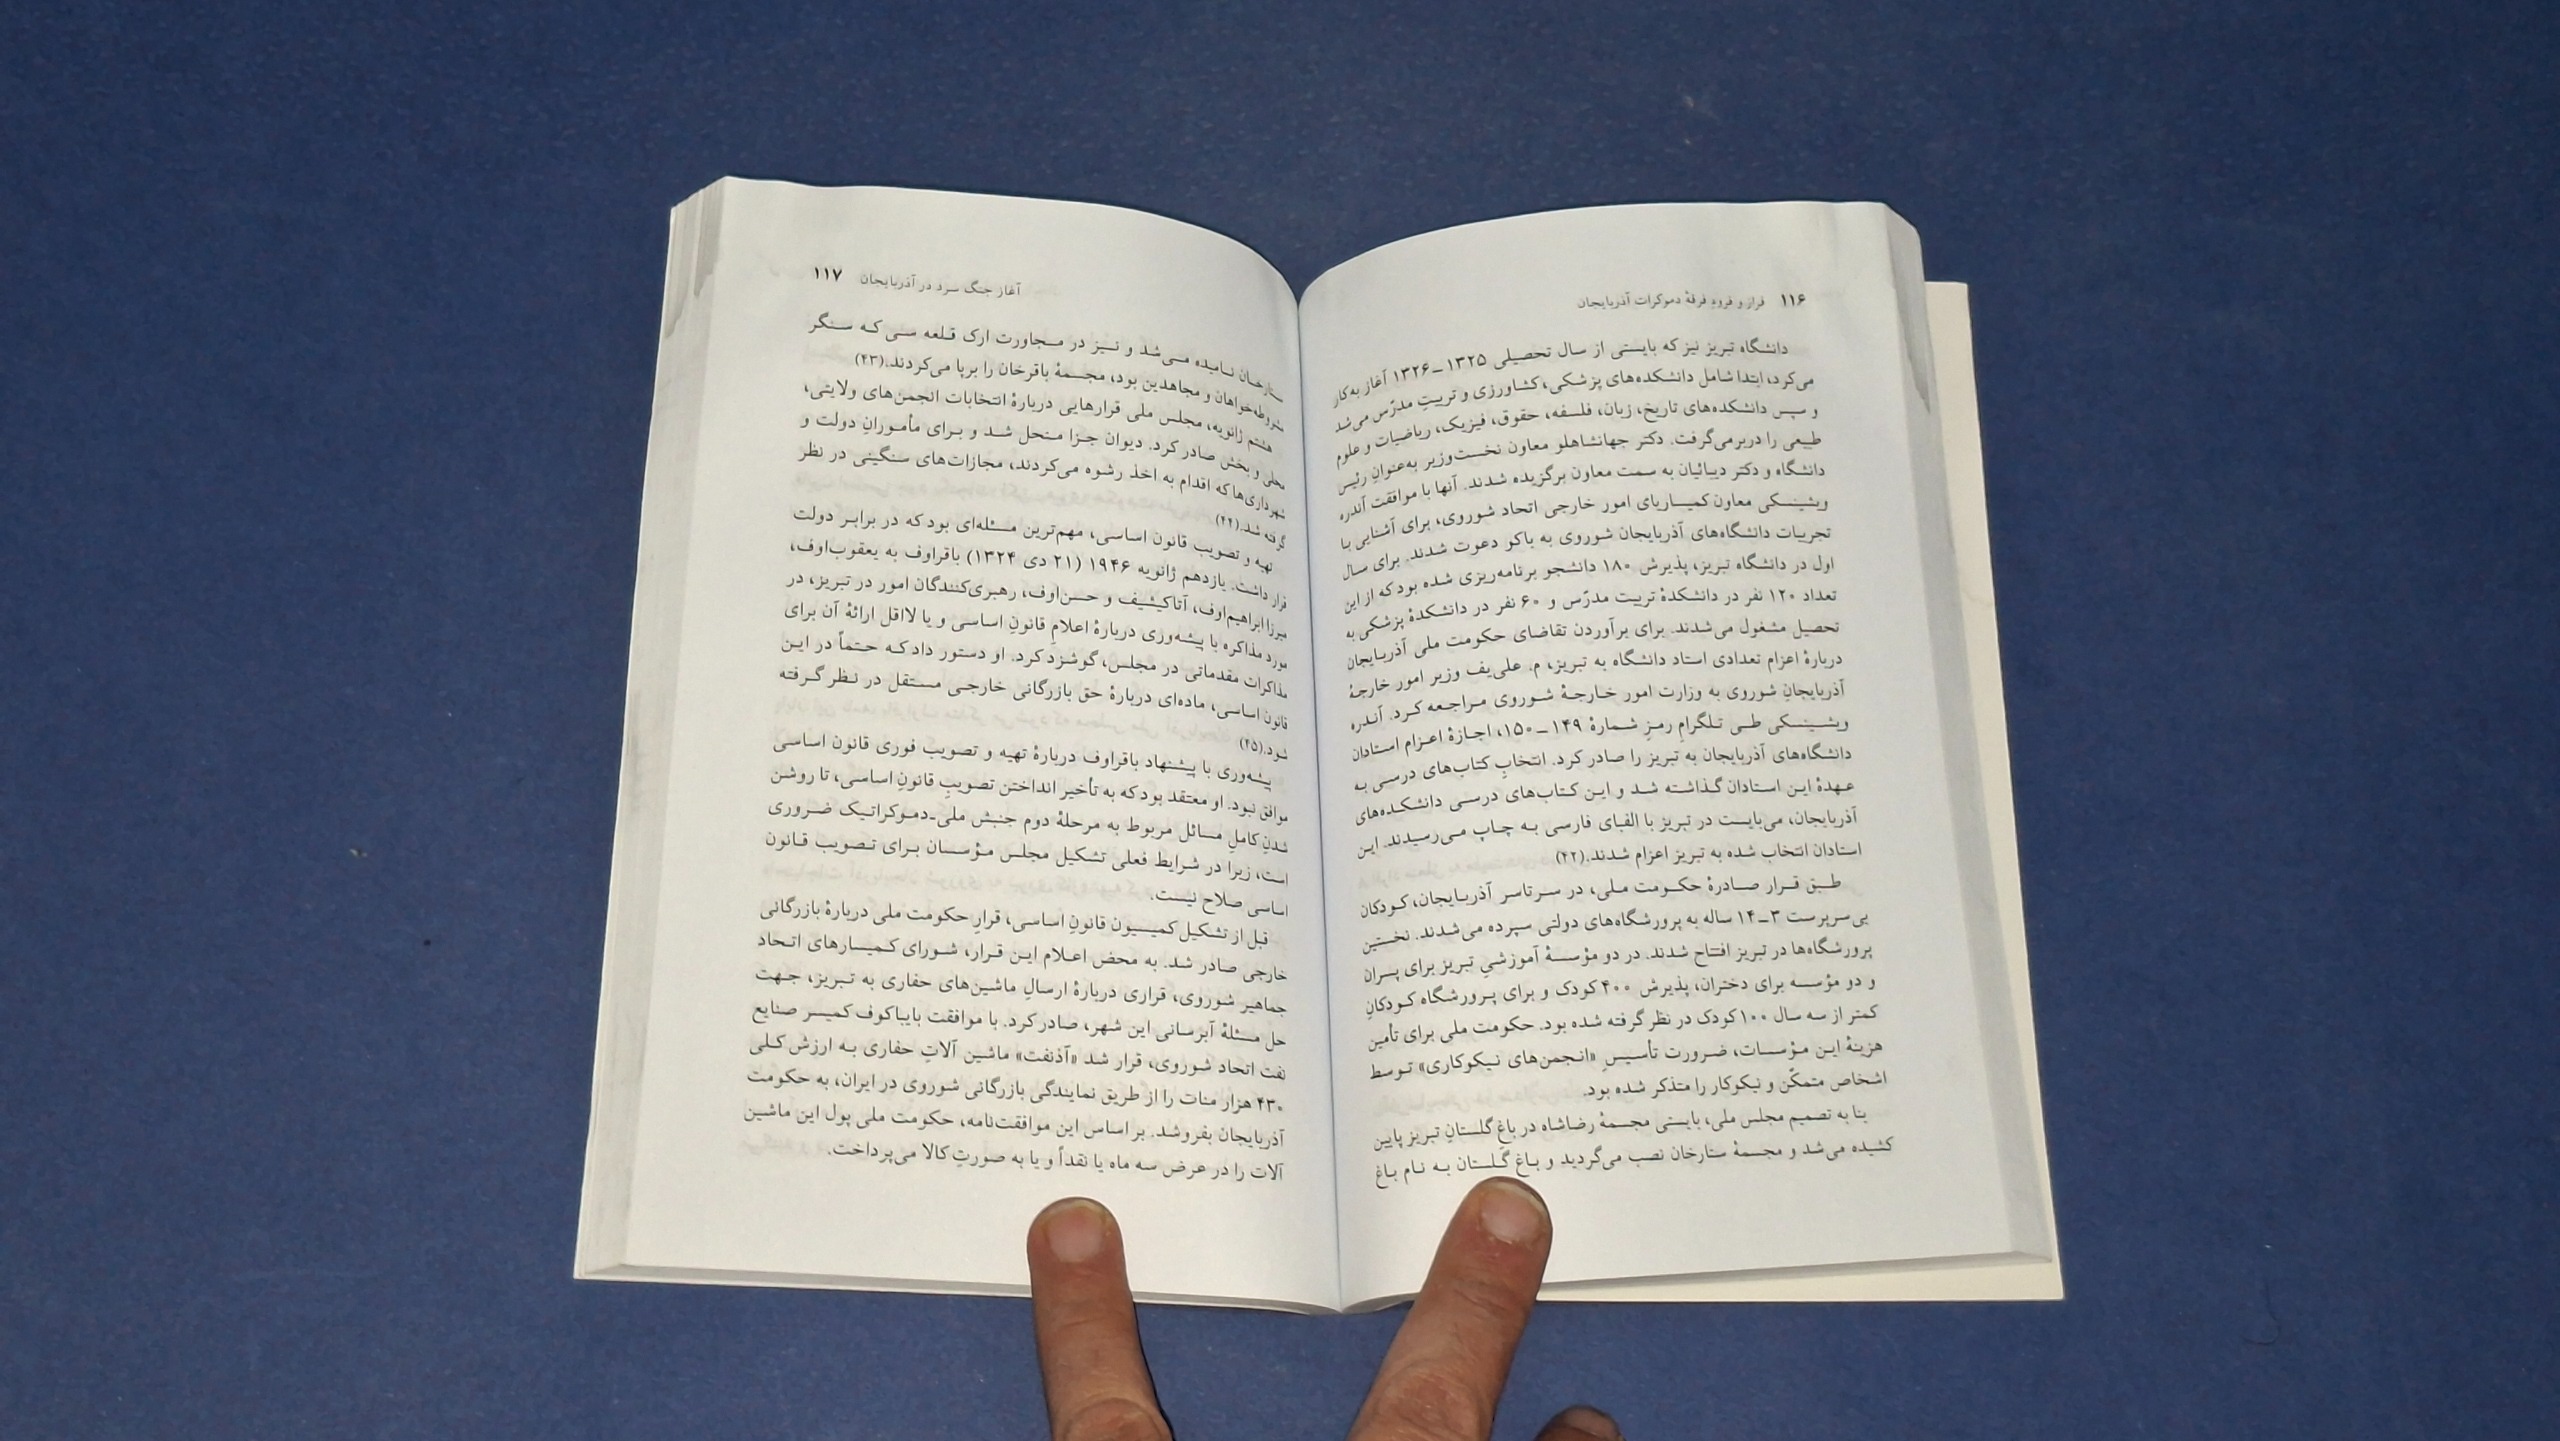 ۱۱۶ فراز و فرود فرقهٔ دموکرات آذربایجان
دانشگاه تبریز نیز که بایستی از سال تحصیلی ۱۳۲۵ ـ ۱۳۲۶ آغاز به‌کار
می‌کرد، ابتدا شامل دانشکده‌های پزشکی، کشاورزی و تربیتِ مدرّس می‌شد
و سپس دانشکده‌های تاریخ، زبان، فلسفه، حقوق، فیزیک، ریاضیات و علوم
طبیعی را دربرمی‌گرفت. دکتر جهانشاهلو معاون نخست‌وزیر به‌عنوانِ رئیس
دانشگاه و دکتر دیبائیان به سمت معاون برگزیده شدند. آنها با موافقت آندره
ویشینسکی معاون کمیساریای امور خارجی اتحاد شوروی، برای آشنایی با
تجربیات دانشگاه‌های آذربایجان شوروی به باکو دعوت شدند. برای سال
اول در دانشگاه تبریز، پذیرش ۱۸۰ دانشجو برنامه‌ریزی شده بود که از این
تعداد ۱۲۰ نفر در دانشکدهٔ تربیت مدرّس و ۶۰ نفر در دانشکدهٔ پزشکی به
تحصیل مشغول می‌شدند. برای برآوردن تقاضای حکومت ملی آذربایجان
دربارهٔ اعزام تعدادی استاد دانشگاه به تبریز، م. علی‌یف وزیر امور خارجهٔ
آذربایجانِ شوروی به وزارت امور خارجهٔ شوروی مراجعه کرد. آندره
ویشینسکی طی تلگرامِ رمزِ شمارهٔ ۱۴۹ ـ ۱۵۰، اجازهٔ اعزام استادان
دانشگاه‌های آذربایجان به تبریز را صادر کرد. انتخابِ کتاب‌های درسی به
عهدهٔ این استادان گذاشته شد و این کتاب‌های درسی دانشکده‌های
آذربایجان، می‌بایست در تبریز با الفبای فارسی به چاپ می‌رسیدند. این
استادان انتخاب شده به تبریز اعزام شدند.(۴۲)
طبق قرار صادرهٔ حکومت ملی، در سرتاسر آذربایجان، کودکان
بی‌سرپرست ۳ ـ ۱۴ ساله به پرورشگاه‌های دولتی سپرده می‌شدند. نخستین
پرورشگاه‌ها در تبریز افتتاح شدند. در دو مؤسسهٔ آموزشیِ تبریز برای پسران
و دو مؤسسه برای دختران، پذیرش ۴۰۰ کودک و برای پرورشگاه کودکانِ
کمتر از سه سال ۱۰۰ کودک در نظر گرفته شده بود. حکومت ملی برای تأمین
هزینهٔ این مؤسسات، ضرورت تأسیسِ «انجمن‌های نیکوکاری» توسط
اشخاص متمکّن و نیکوکار را متذکر شده بود.
بنا به تصمیم مجلس ملی، بایستی مجسمهٔ رضاشاه در باغِ گلستانِ تبریز پایین
کشیده می‌شد و مجسمهٔ ستارخان نصب می‌گردید و باغ گلستان به نام باغ
آغاز جنگ سرد در آذربایجان ۱۱۷
ستارخان نامیده می‌شد و نیز در مجاورت ارک قلعه سی که سنگر
مشروطه‌خواهان و مجاهدین بود، مجسمهٔ باقرخان را برپا می‌کردند.(۴۳)
هشتم ژانویه، مجلس ملی قرارهایی دربارهٔ انتخابات انجمن‌های ولایتی،
محلی و بخش صادر کرد. دیوان جزا منحل شد و برای مأمورانِ دولت و
شهرداری‌ها که اقدام به اخذ رشوه می‌کردند، مجازات‌های سنگینی در نظر
گرفته شد.(۴۴)
تهیه و تصویب قانون اساسی، مهم‌ترین مسئله‌ای بود که در برابر دولت
قرار داشت. یازدهم ژانویه ۱۹۴۶ (۲۱ دی ۱۳۲۴) باقراوف به یعقوب‌اوف،
میرزا ابراهیم‌اوف، آتاکیشیف و حسن‌اوف، رهبری‌کنندگان امور در تبریز، در
مورد مذاکره با پیشه‌وری دربارهٔ اعلامِ قانونِ اساسی و یا لااقل ارائهٔ آن برای
مذاکرات مقدماتی در مجلس، گوشزد کرد. او دستور داد که حتماً در این
قانون اساسی، ماده‌ای دربارهٔ حق بازرگانی خارجی مستقل در نظر گرفته
شود.(۴۵)
پیشه‌وری با پیشنهاد باقراوف دربارهٔ تهیه و تصویب فوری قانون اساسی
موافق نبود. او معتقد بود که به تأخیر انداختن تصویبِ قانونِ اساسی، تا روشن
شدنِ کاملِ مسائل مربوط به مرحلهٔ دوم جنبش ملی-دموکراتیک ضروری
است، زیرا در شرایط فعلی تشکیل مجلس مؤسسان برای تصویب قانون
اساسی صلاح نیست.
قبل از تشکیل کمیسیون قانونِ اساسی، قرارِ حکومت ملی دربارهٔ بازرگانی
خارجی صادر شد. به محض اعلام این قرار، شورای کمیسارهای اتحاد
جماهیر شوروی، قراری دربارهٔ ارسالِ ماشین‌های حفاری به تبریز، جهت
حل مسئلهٔ آبرسانی این شهر، صادر کرد. با موافقت بایباکوف کمیسر صنایع
نفت اتحاد شوروی، قرار شد «آذنفت» ماشین آلاتِ حفاری به ارزش کلی
۴۳۰ هزار منات را از طریق نمایندگی بازرگانی شوروی در ایران، به حکومت
آذربایجان بفروشد. بر اساس این موافقت‌نامه، حکومت ملی پول این ماشین
آلات را در عرض سه ماه یا نقداً و یا به صورتِ کالا می‌پرداخت.